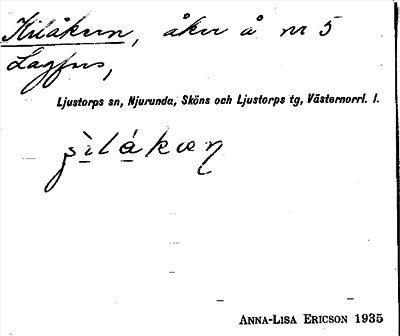 Kilåkern, åker å nr 5
Lagfors,
Ljustorps sn, Njurunda, Sköns och Ljustorps tg, Västernorrl. l.
ANNA-LISA ERICSON 1935